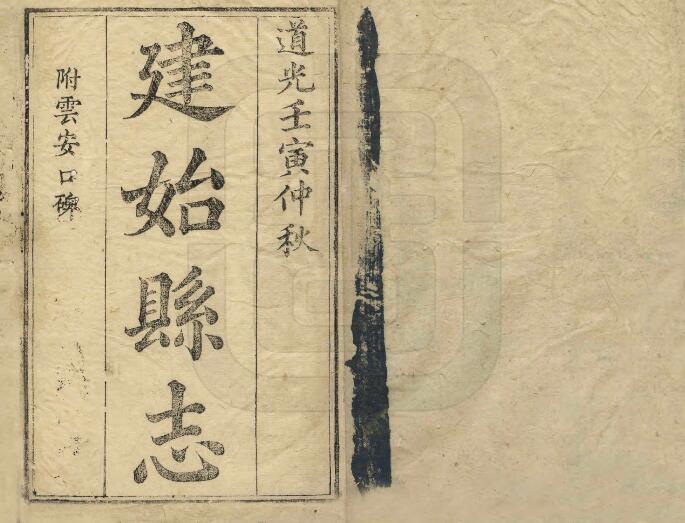 道光壬寅仲秋
建始縣志
附雲安口碑